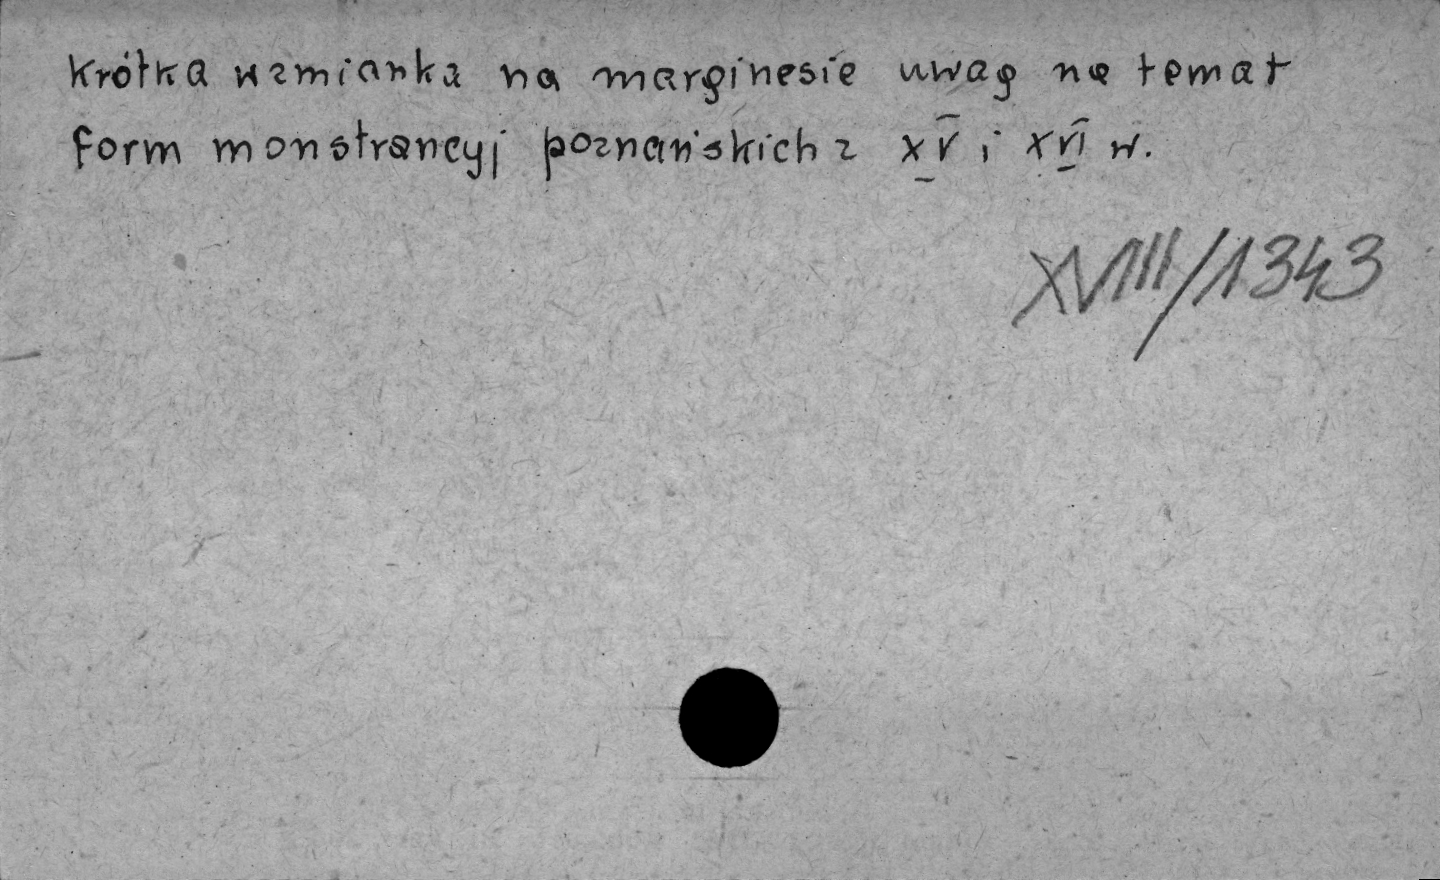 Krótka wzmianka na marginesie uwag na temat
form monstrancyj poznańskich z XV i XVI w.
XVIII/1343